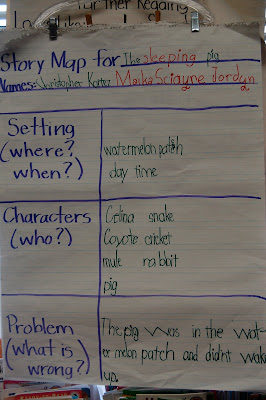 Further Reading
Story Map for The sleeping pig
Names: Christopher Karter Marka Sciayne Jordyn
Setting
(where?
when?)
watermelon patch
day time
Characters
(who?)
Celina snake
Coyote cricket
mule rabbit
pig
Problem
(what is
wrong?)
The pig was in the wat-
er melon patch and didn't wake
up.